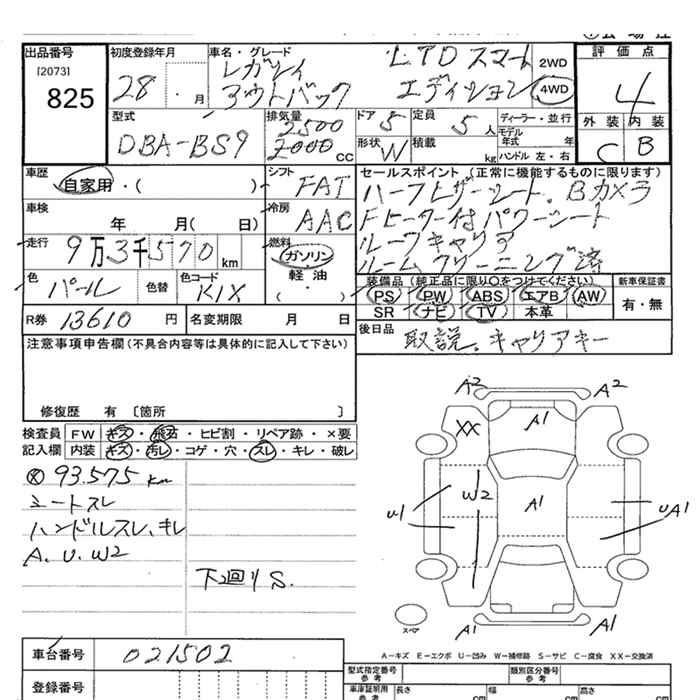 出品番号
[2073]
825
初度登録年月
28 . 月
車名・グレード
レガシィ
アウトバック
LTD スマート
エディション
2WD
4WD
評価点
4
外装 内装
C B
型式
DBA-BS9
排気量
2500
2000 CC
ドア 5
定員 5 人
形状 W
積載 kg
ディーラー・並行
モデル年式 年
ハンドル 左・右
車歴
自家用・( )
シフト
FAT
車検
年 月( 日)
冷房
AAC
走行
9万3千570 km
燃料
ガソリン
軽油
( ・ )
色
パール
色替
色コード
K1X
R券 13610 円
名変期限 月 日
セールスポイント (正常に機能するものに限ります)
ハーフレザーシート。Bカメラ
Fヒーター付パワーシート
ルーフキャリア
ルームクリーニング済
装備品 (純正品に限り○をつけてください)
PS PW ABS エアB AW
SR ナビ TV 本革
新車保証書
有・無
後日品 取説。キャリアキー
注意事項申告欄 (不具合内容等は具体的に記入して下さい)
修復歴 有 〔箇所 〕
検査員
記入欄
FW キズ・飛石・ヒビ割・リペア跡・×要
内装 キズ・汚レ・コゲ・穴・スレ・キレ・破レ
93.575 km
シートスレ
ハンドルスレ、キレ
A、U、W2
下廻りS.
A2 A2
XX A1
W2 A1
U1 UA1
A1 A1
スペア
A-キズ E-エクボ U-凹み W-補修跡 S-サビ C-腐食 XX-交換済
車台番号 021502
登録番号
型式指定番号
参考
類別区分番号
参考
車庫証明用
参考
長さ cm
幅 cm
高さ cm